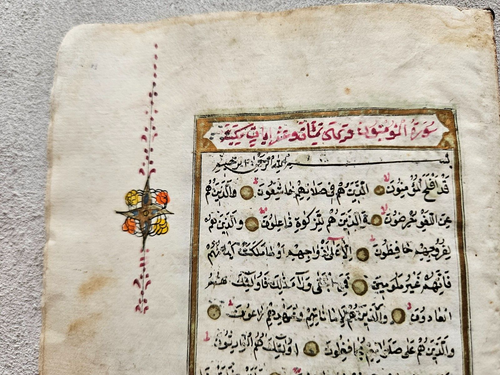 سورة المؤمنون وهي مائة وعشر ايات مكية
بسم الله الرحمن الرحيم
قد افلح المؤمنون الذين هم في صلاتهم خاشعون والذين هم
عن اللغو معرضون والذين هم للزكوة فاعلون والذين هم
لفروجهم حافظون الا على ازواجهم او ما ملكت ايمانهم
فانهم غير ملومين فمن ابتغى وراء ذلك فاولئك هم
العادون والذين هم لاماناتهم وعهدهم راعون
والذين هم على صلواتهم يحافظون اولئك هم الوارثون